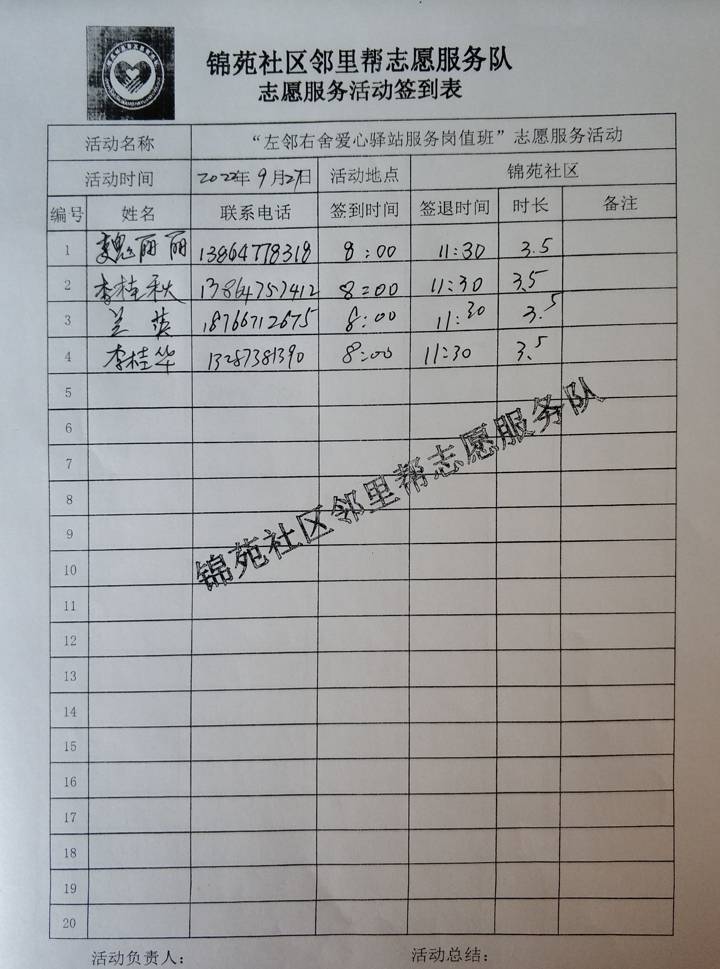 锦苑社区邻里帮志愿服务队
志愿服务活动签到表
活动名称 “左邻右舍爱心驿站服务岗值班”志愿服务活动
活动时间 2022年9月27日 活动地点 锦苑社区
编号 姓名 联系电话 签到时间 签退时间 时长 备注
1 魏丽丽 13864778318 8:00 11:30 3.5
2 李桂秋 13864757412 8:00 11:30 3.5
3 兰 18766712675 8:00 11:30 3.5
4 李桂华 13287381390 8:00 11:30 3.5
5
6
7
8
9
10
11
12
13
14
15
16
17
18
19
20
锦苑社区邻里帮志愿服务队
活动负责人： 活动总结：